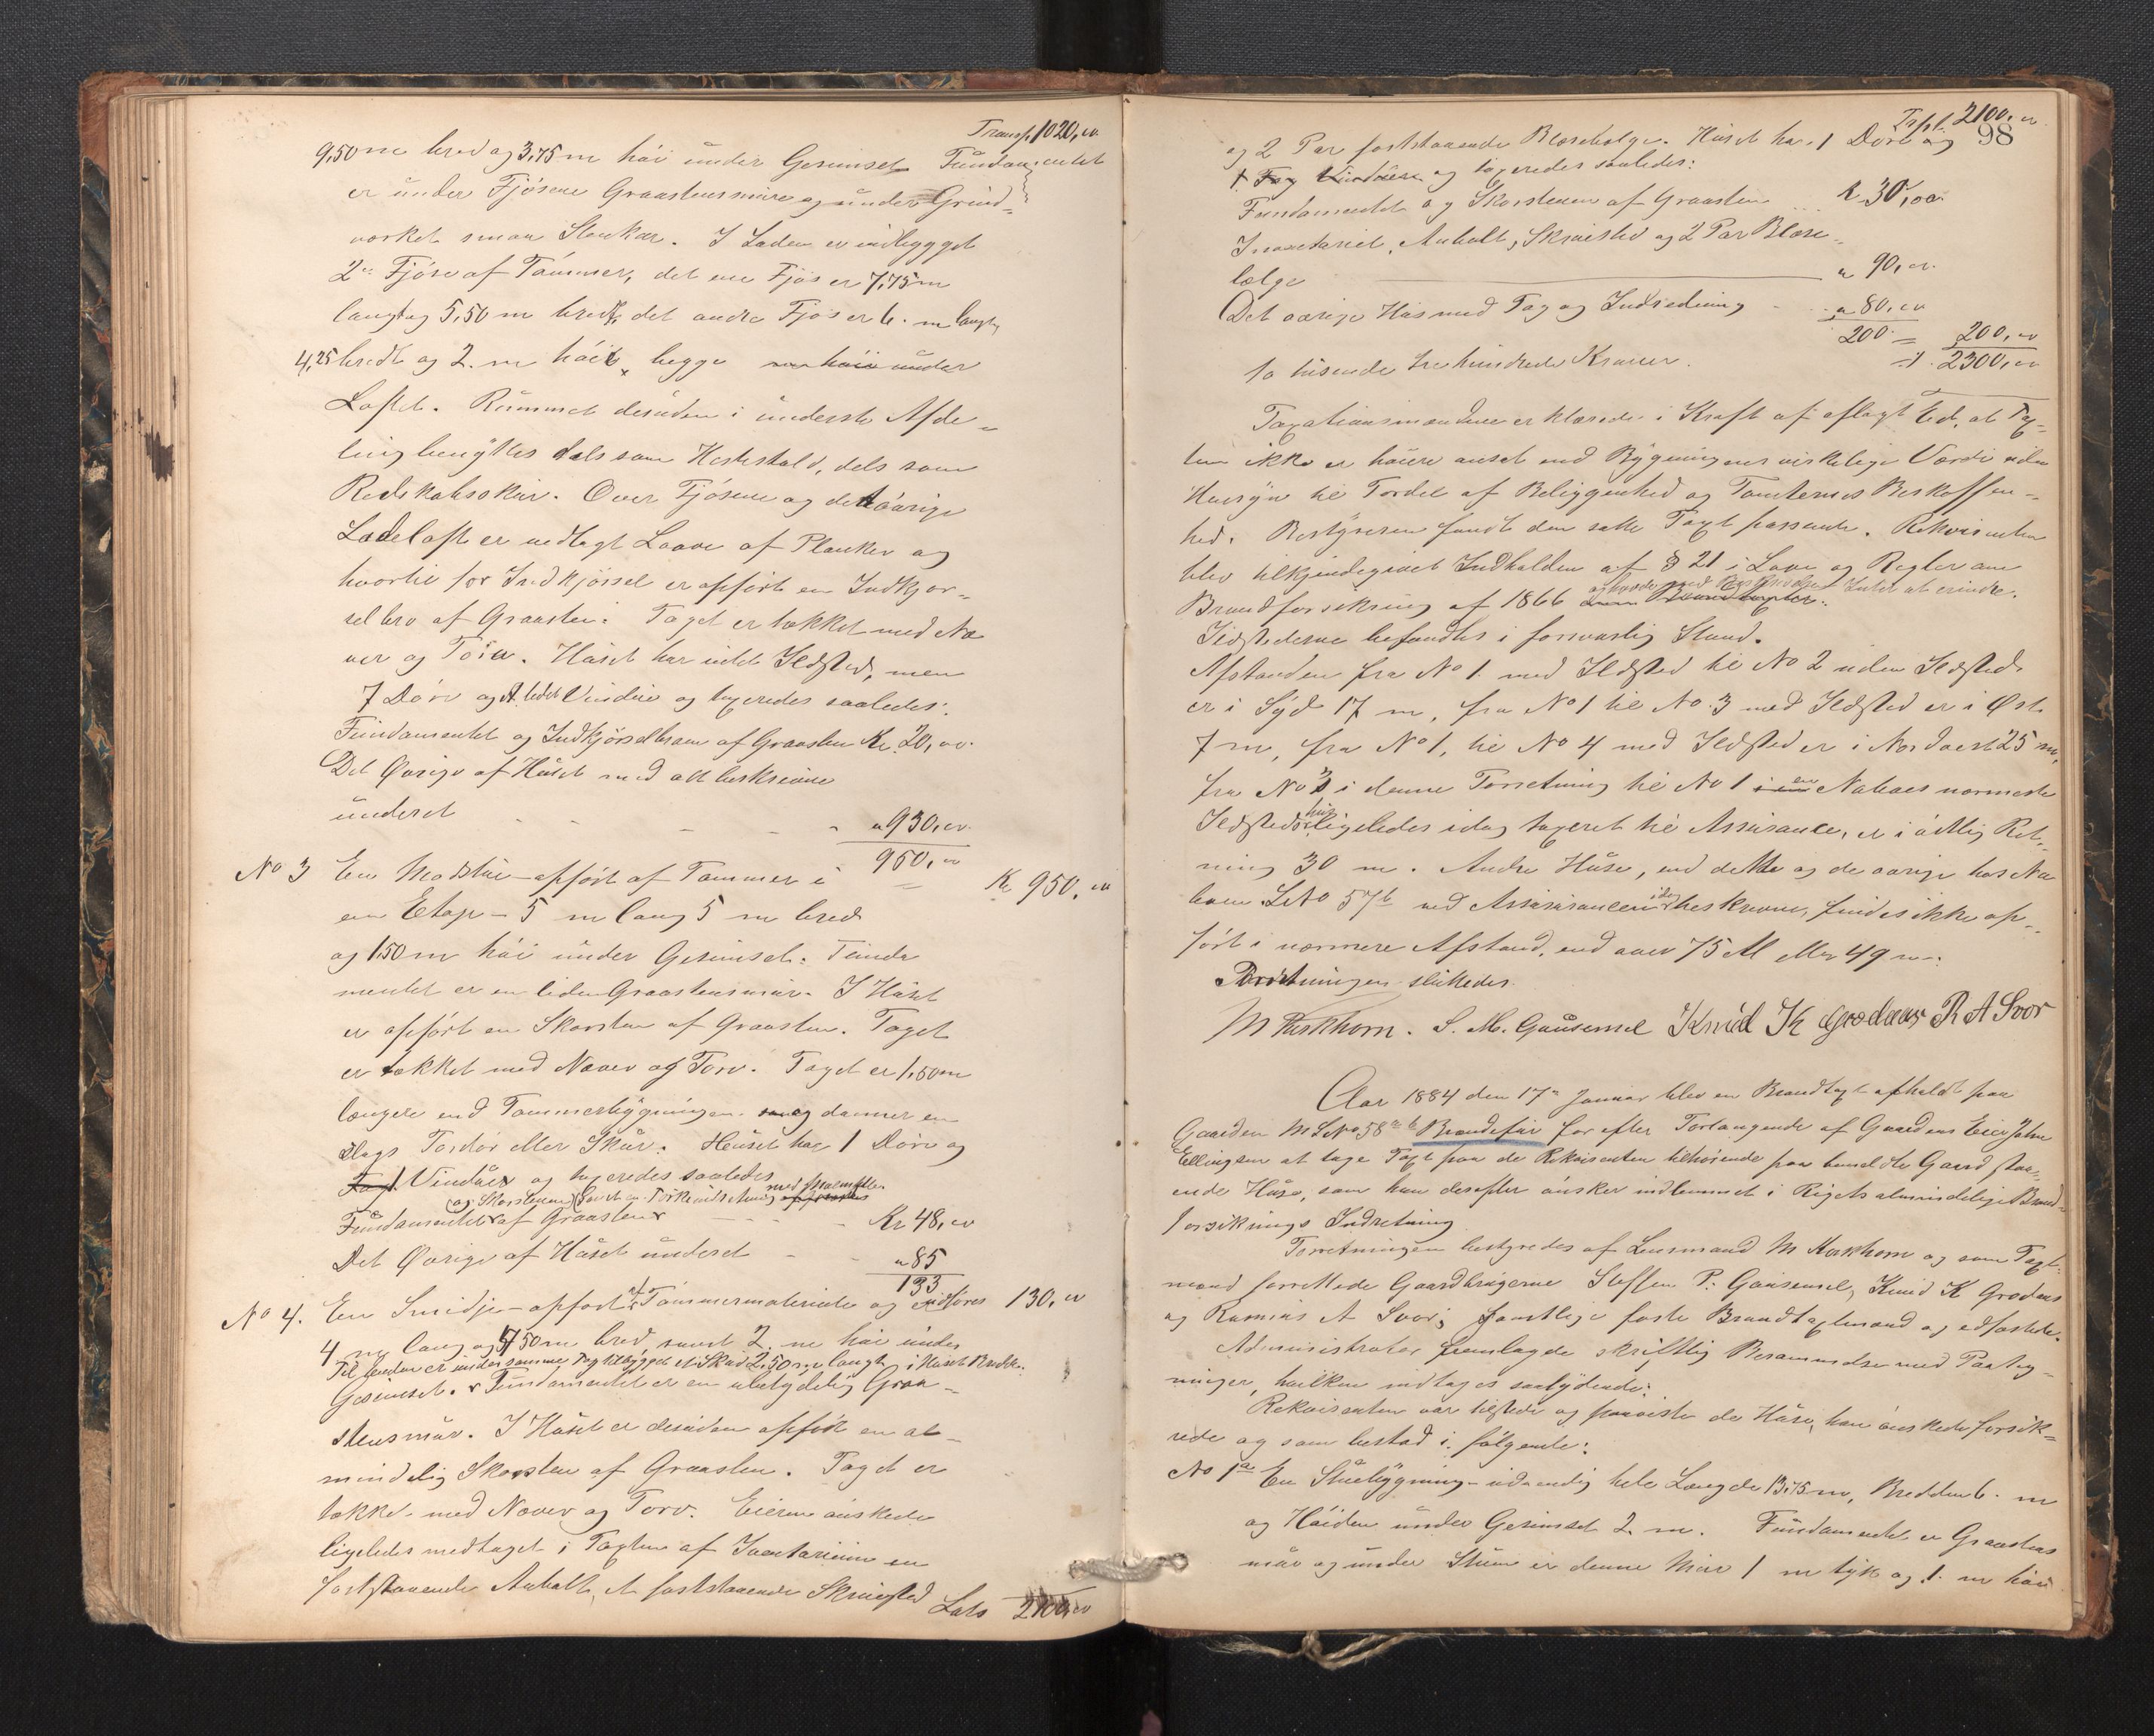 Transp. 1020,00
9,50 m bred og 3,75 m höi under Gesimset Fundamentet
er under Fjösene Graastensmure og under Grind-
værket smaa Stenkar. I Laden er indbygget
2de Fjöse af Tömmer, det ene Fjös er 7,75 m
langt og 5,50 m bredt, det andre Fjös er 6. m langt,
4,25 bredt og 2. m höit, begge under
Loftet. Rummet desuden i underste Afde-
ling benyttes dels som Hestestald, dels som
Redskabsskur. Over Fjösene og det övrige
Ladeloft er nedlagt Laave af Planker og
hvortil for Indkjörsel er opfört en Indkjör-
selbro af Graasten. Taget er tækket med Næ
ver og Torv. Huset har intet Ildsted, men
7 Döre og et lidet Vindue og taxeredes saaledes:
Fundamentet og Indkjörselbroen af Graasten Kr. 20,00.
Det Övrige af Huset med alt beskrevne
underet - - - - " 930,00
950,00
Kr 950,00
No 3 En Madstue opfört af Tømmer i
een Etage - 5 m lang 5 m bred
og 1,50 m höi under Gesimset. Funda
mentet er en liden Graastensmur. I Huset
er opfört en Skorsten af Graasten. Taget
er tækket med Næver og Torv. Taget er 1,50 m
længere end Tømmerbygningen og danner en
Slags Fordör eller Skur. Huset har 1 Döre og
1. Vindue og taxeredes saaledes
(og Skorstenen) samt en Törkeindretning med
Fundamentet af Graasten - - - Kr 48,00
Det Övrige af Huset underet - - " 85
133
udføres 130,00
No 4. En Smidje - opfört af Tømmermateriale og
4 m lang og 4,50 m bred, samt 2. m höi under
Til denne er under samme Tag tilbygget et Skur 2,50 m langt, i Huset Bredde.
Gesimset. Fundamentet er en ubetydelig Graa-
stensmur. I Huset er desuden opfört en al-
mindelig Skorsten af Graasten. Taget er
tækket med Næver og Torv. Eieren önskede
ligeledes medtaget i Taxten af Inventarium en
fastsstaaende Ambolt, et faststaaende Skruested
Lats 2100,00
Trpt. 2100,00
98
og 2 Par faststaaende Blæsebælge. Huset har 1 Döre og
1. Fag Vinduer og taxeredes saaledes:
Fundamentet og Skorstenen af Graasten ... K 30,00.
Inventariet, Ambolt, Skruested og 2 Par Blæse-
bælge " 90,00.
Det övrige Hus med Tag og Indredning - " 80,00
200 = 200,00
2300,00
to tusende tre hundrede Kroner.
Taxationsmændene erklærede i Kraft af aflagt Ed, at Tax-
ten ikke er höiere ansat end Bygningens virkelige Værdi uden
Hensyn til Fordel af Beliggenhed og Tomternes Beskaffen-
hed. Bestyreren fandt den satte Taxt passende. Rekvirenten
blev tilkjendegivet Indholden af § 21 i Love og Regler om
Brandforsikring af 1866 og havde med Beskrivelsen Intet at erindre.
Ildstederne befandtes i forsvarlig Stand.
Afstanden fra No 1. med Ildsted til No 2 uden Ildsted
er i Syd 17 m, fra No 1 til No. 3 med Ildsted er i Øst
7 m, fra No 1, til No 4 med Ildsted er i Nordvest 25 m,
fra No 3 i denne Forretning til No 1 en Naboes nærmeste
Ildstedshus ligeledes idag taxeret til Assurance, er i östlig Ret-
ning 30 m. Andre Huse, end dette og de övrige hos Na
boen LNo 57b ved Assurancen idag beskrevne, findes ikke op-
fört i nærmere Afstand, end over 75 Al eller 49 m.
Forretningen sluttedes.
M Hurkhorn. S. M. Gausemel Knud K Grodaas R A Svor
Aar 1884 den 17de Januar blev en Brandtaxt afholdt paa
Gaarden M LNo 58 a b Brandsfur for efter Forlangende af Gaardens Eier John
Ellingsen at tage Taxt paa de Rekvirenten tilhörende paa bemeldte Gaard staa-
ende Huse, som han derefter önsker indlemmet i Rigets almindelige Brand-
forsikrings Indretning
Forretningen bestyredes af Lensmand M Hurkhorn og som Taxt-
mænd forrettede Gaardbrugerne Steffen P. Gausemel, Knud K Grodaas
og Rasmus A Svor, samtlige faste Brandtaxtmænd og edfæstede.
Administrator fremlagde skriftlig Berammelse med Paateg-
ninger, hvilken indtages saalydende:
Rekvirenten var tilstede og paaviste de Huse, han önskede forsik-
rede og som bestod i fölgende:
No 1a En Stuebygning - udvendig hele Længde 13,75 m, Bredden 6. m
og Höiden under Gesimset 2. m. Fundamentet er Graastens
mur og under Stuen er denne Mur 1 m tyk og 1. m höi